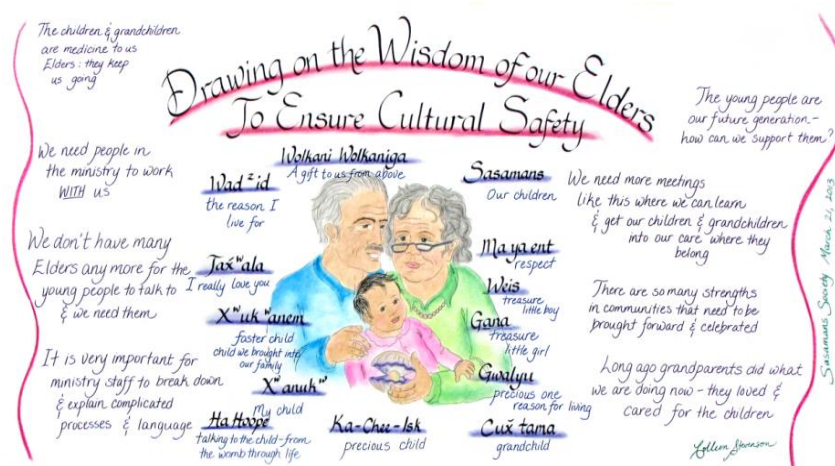 Drawing on the Wisdom of our Elders
To Ensure Cultural Safety
The children & grandchildren
are medicine to us
Elders: they keep
us going
We need people in
the ministry to work
WITH us
We don't have many
Elders any more for the
young people to talk to
& we need them
It is very important for
ministry staff to break down
& explain complicated
processes & language
Wolkani Wolkaniga
A gift to us from above
Wadᶻid
the reason I
live for
Ťax̌ʷala
I really love you
Xʷukʷanem
foster child
child we brought into
our family
Xʷanukʷ
My child
Ha Hoope
talking to the child-from
the womb through life
Ka-Chee-Isk
precious child
Sasamans
Our children
Ma ya ent
respect
Weis
treasure
little boy
Gana
treasure
little girl
Gwalyu
precious one
reason for living
Cux̌ tama
grandchild
The young people are
our future generation-
how can we support them?
We need more meetings
like this where we can learn
& get our children & grandchildren
into our care where they
belong
There are so many strengths
in communities that need to be
brought forward & celebrated
Long ago grandparents did what
we are doing now - they loved &
cared for the children
Colleen Stevenson
Sasamans Society March 21, 2013